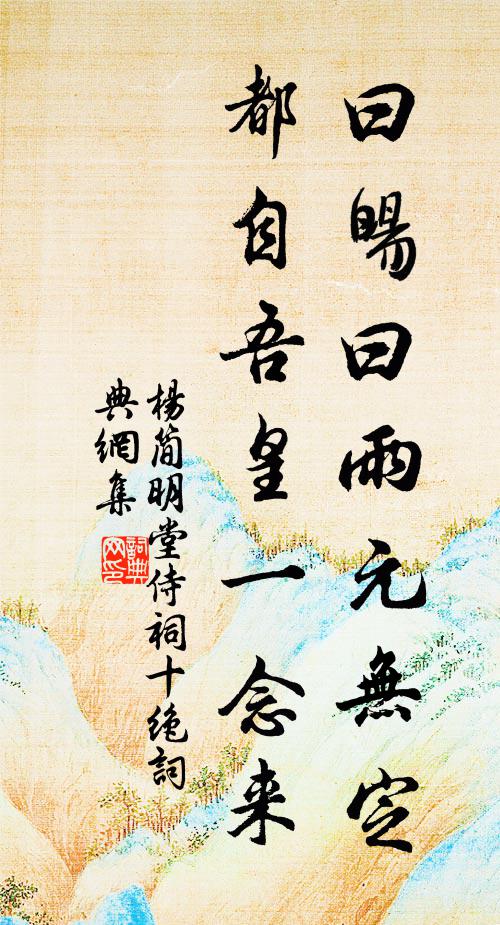 曰暘曰雨元無定
都自吾皇一念来
楊簡明堂侍祠十絶詞
典網集
詞典
网印